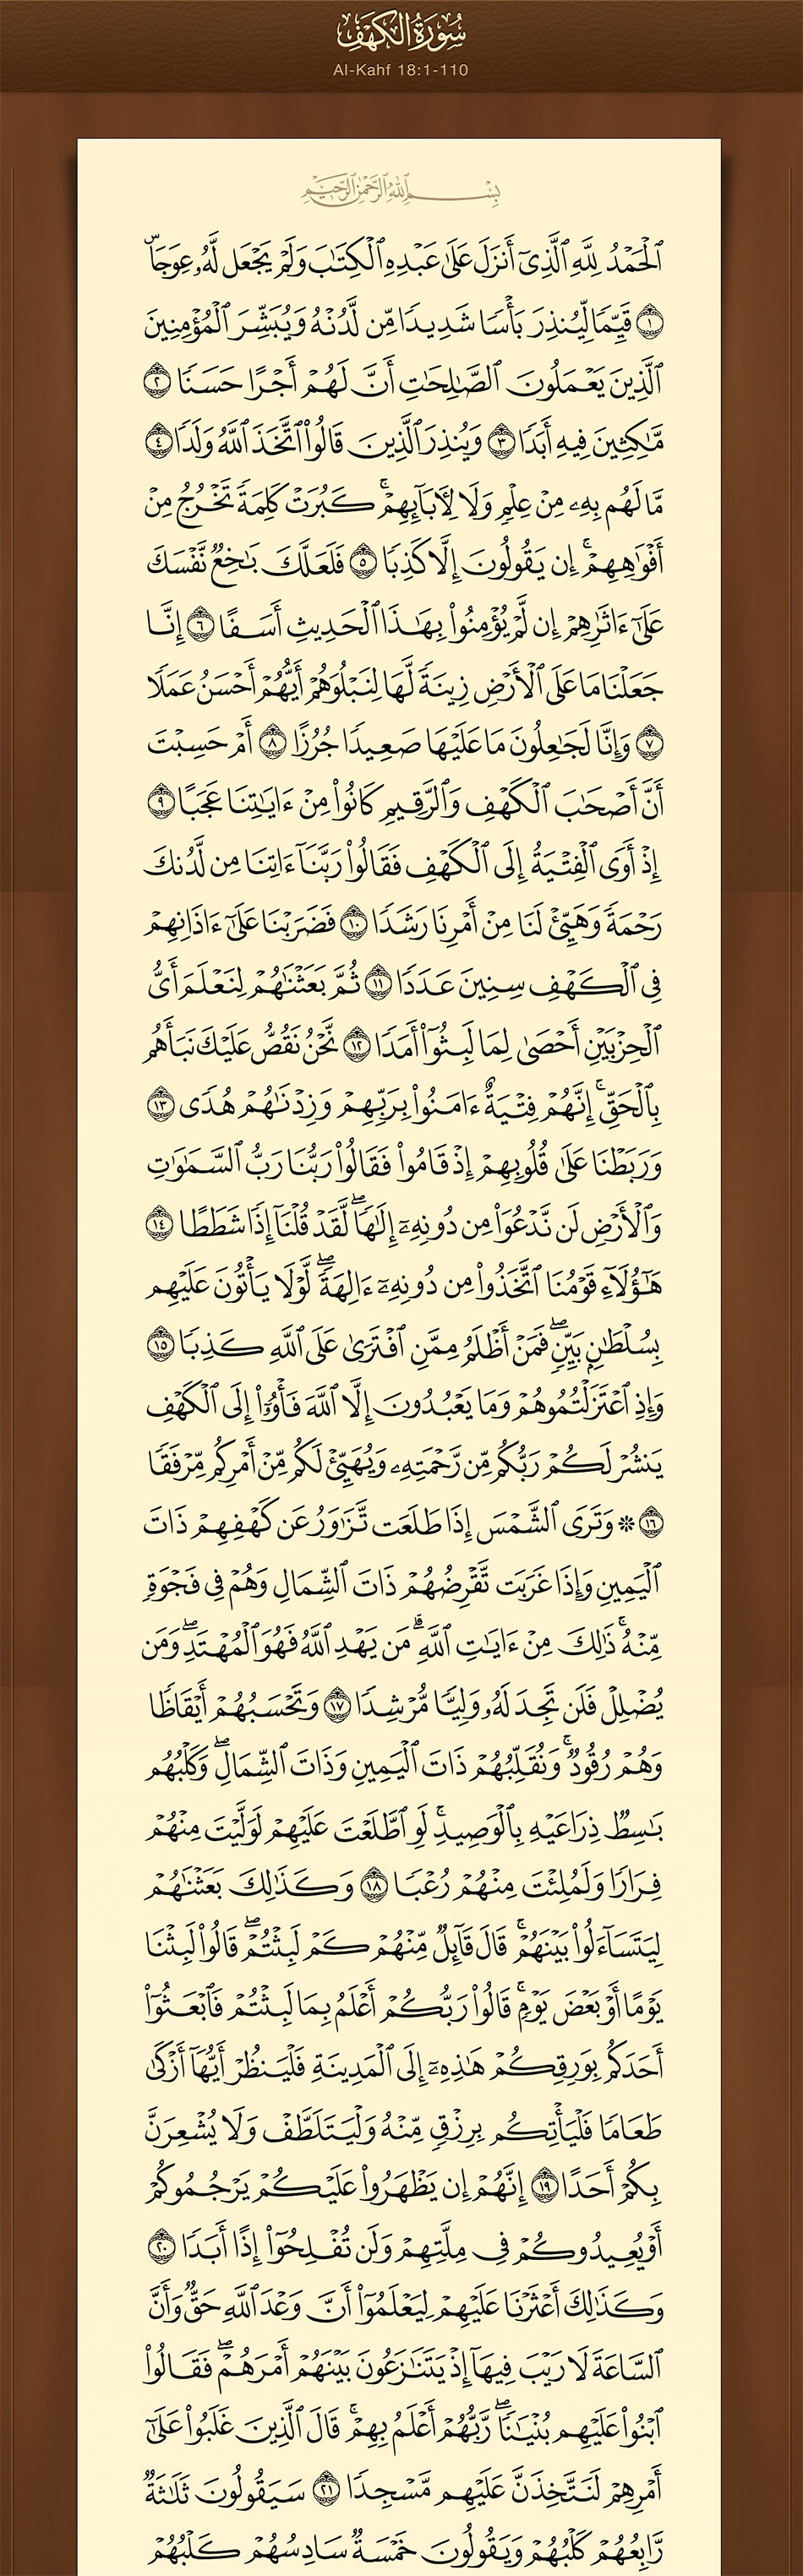 سُورَةُ الكَهْفِ
Al-Kahf 18:1-110
بِسْمِ ٱللَّهِ ٱلرَّحْمَٰنِ ٱلرَّحِيمِ
ٱلْحَمْدُ لِلَّهِ ٱلَّذِىٓ أَنزَلَ عَلَىٰ عَبْدِهِ ٱلْكِتَٰبَ وَلَمْ يَجْعَل لَّهُۥ عِوَجَاۜ
١ قَيِّمًا لِّيُنذِرَ بَأْسًا شَدِيدًا مِّن لَّدُنْهُ وَيُبَشِّرَ ٱلْمُؤْمِنِينَ
ٱلَّذِينَ يَعْمَلُونَ ٱلصَّٰلِحَٰتِ أَنَّ لَهُمْ أَجْرًا حَسَنًا ٢
مَّٰكِثِينَ فِيهِ أَبَدًا ٣ وَيُنذِرَ ٱلَّذِينَ قَالُوا۟ ٱتَّخَذَ ٱللَّهُ وَلَدًا ٤
مَّا لَهُم بِهِۦ مِنْ عِلْمٍ وَلَا لِءَابَآئِهِمْ ۚ كَبُرَتْ كَلِمَةً تَخْرُجُ مِنْ
أَفْوَٰهِهِمْ ۚ إِن يَقُولُونَ إِلَّا كَذِبًا ٥ فَلَعَلَّكَ بَٰخِعٌ نَّفْسَكَ
عَلَىٰٓ ءَاثَٰرِهِمْ إِن لَّمْ يُؤْمِنُوا۟ بِهَٰذَا ٱلْحَدِيثِ أَسَفًا ٦ إِنَّا
جَعَلْنَا مَا عَلَى ٱلْأَرْضِ زِينَةً لَّهَا لِنَبْلُوَهُمْ أَيُّهُمْ أَحْسَنُ عَمَلًا
٧ وَإِنَّا لَجَٰعِلُونَ مَا عَلَيْهَا صَعِيدًا جُرُزًا ٨ أَمْ حَسِبْتَ
أَنَّ أَصْحَٰبَ ٱلْكَهْفِ وَٱلرَّقِيمِ كَانُوا۟ مِنْ ءَايَٰتِنَا عَجَبًا ٩
إِذْ أَوَى ٱلْفِتْيَةُ إِلَى ٱلْكَهْفِ فَقَالُوا۟ رَبَّنَآ ءَاتِنَا مِن لَّدُنكَ
رَحْمَةً وَهَيِّئْ لَنَا مِنْ أَمْرِنَا رَشَدًا ١٠ فَضَرَبْنَا عَلَىٰٓ ءَاذَانِهِمْ
فِى ٱلْكَهْفِ سِنِينَ عَدَدًا ١١ ثُمَّ بَعَثْنَٰهُمْ لِنَعْلَمَ أَىُّ
ٱلْحِزْبَيْنِ أَحْصَىٰ لِمَا لَبِثُوٓا۟ أَمَدًا ١٢ نَّحْنُ نَقُصُّ عَلَيْكَ نَبَأَهُم
بِٱلْحَقِّ ۚ إِنَّهُمْ فِتْيَةٌ ءَامَنُوا۟ بِرَبِّهِمْ وَزِدْنَٰهُمْ هُدًى ١٣
وَرَبَطْنَا عَلَىٰ قُلُوبِهِمْ إِذْ قَامُوا۟ فَقَالُوا۟ رَبُّنَا رَبُّ ٱلسَّمَٰوَٰتِ
وَٱلْأَرْضِ لَن نَّدْعُوَا۟ مِن دُونِهِۦٓ إِلَٰهًا ۖ لَّقَدْ قُلْنَآ إِذًا شَطَطًا ١٤
هَٰٓؤُلَآءِ قَوْمُنَا ٱتَّخَذُوا۟ مِن دُونِهِۦٓ ءَالِهَةً ۖ لَّوْلَا يَأْتُونَ عَلَيْهِم
بِسُلْطَٰنٍۭ بَيِّنٍ ۖ فَمَنْ أَظْلَمُ مِمَّنِ ٱفْتَرَىٰ عَلَى ٱللَّهِ كَذِبًا ١٥
وَإِذِ ٱعْتَزَلْتُمُوهُمْ وَمَا يَعْبُدُونَ إِلَّا ٱللَّهَ فَأْوُۥٓا۟ إِلَى ٱلْكَهْفِ
يَنشُرْ لَكُمْ رَبُّكُم مِّن رَّحْمَتِهِۦ وَيُهَيِّئْ لَكُم مِّنْ أَمْرِكُم مِّرْفَقًا
١٦ ۞ وَتَرَى ٱلشَّمْسَ إِذَا طَلَعَت تَّزَٰوَرُ عَن كَهْفِهِمْ ذَاتَ
ٱلْيَمِينِ وَإِذَا غَرَبَت تَّقْرِضُهُمْ ذَاتَ ٱلشِّمَالِ وَهُمْ فِى فَجْوَةٍ
مِّنْهُ ۚ ذَٰلِكَ مِنْ ءَايَٰتِ ٱللَّهِ ۗ مَن يَهْدِ ٱللَّهُ فَهُوَ ٱلْمُهْتَدِ ۖ وَمَن
يُضْلِلْ فَلَن تَجِدَ لَهُۥ وَلِيًّا مُّرْشِدًا ١٧ وَتَحْسَبُهُمْ أَيْقَاظًا
وَهُمْ رُقُودٌ ۚ وَنُقَلِّبُهُمْ ذَاتَ ٱلْيَمِينِ وَذَاتَ ٱلشِّمَالِ ۖ وَكَلْبُهُم
بَٰسِطٌ ذِرَاعَيْهِ بِٱلْوَصِيدِ ۚ لَوِ ٱطَّلَعْتَ عَلَيْهِمْ لَوَلَّيْتَ مِنْهُمْ
فِرَارًا وَلَمُلِئْتَ مِنْهُمْ رُعْبًا ١٨ وَكَذَٰلِكَ بَعَثْنَٰهُمْ
لِيَتَسَآءَلُوا۟ بَيْنَهُمْ ۚ قَالَ قَآئِلٌ مِّنْهُمْ كَمْ لَبِثْتُمْ ۖ قَالُوا۟ لَبِثْنَا
يَوْمًا أَوْ بَعْضَ يَوْمٍ ۚ قَالُوا۟ رَبُّكُمْ أَعْلَمُ بِمَا لَبِثْتُمْ فَٱبْعَثُوٓا۟
أَحَدَكُم بِوَرِقِكُمْ هَٰذِهِۦٓ إِلَى ٱلْمَدِينَةِ فَلْيَنظُرْ أَيُّهَآ أَزْكَىٰ
طَعَامًا فَلْيَأْتِكُم بِرِزْقٍ مِّنْهُ وَلْيَتَلَطَّفْ وَلَا يُشْعِرَنَّ
بِكُمْ أَحَدًا ١٩ إِنَّهُمْ إِن يَظْهَرُوا۟ عَلَيْكُمْ يَرْجُمُوكُمْ
أَوْ يُعِيدُوكُمْ فِى مِلَّتِهِمْ وَلَن تُفْلِحُوٓا۟ إِذًا أَبَدًا ٢٠
وَكَذَٰلِكَ أَعْثَرْنَا عَلَيْهِمْ لِيَعْلَمُوٓا۟ أَنَّ وَعْدَ ٱللَّهِ حَقٌّ وَأَنَّ
ٱلسَّاعَةَ لَا رَيْبَ فِيهَآ إِذْ يَتَنَٰزَعُونَ بَيْنَهُمْ أَمْرَهُمْ ۖ فَقَالُوا۟
ٱبْنُوا۟ عَلَيْهِم بُنْيَٰنًا ۖ رَّبُّهُمْ أَعْلَمُ بِهِمْ ۚ قَالَ ٱلَّذِينَ غَلَبُوا۟ عَلَىٰٓ
أَمْرِهِمْ لَنَتَّخِذَنَّ عَلَيْهِم مَّسْجِدًا ٢١ سَيَقُولُونَ ثَلَٰثَةٌ
رَّابِعُهُمْ كَلْبُهُمْ وَيَقُولُونَ خَمْسَةٌ سَادِسُهُمْ كَلْبُهُمْ